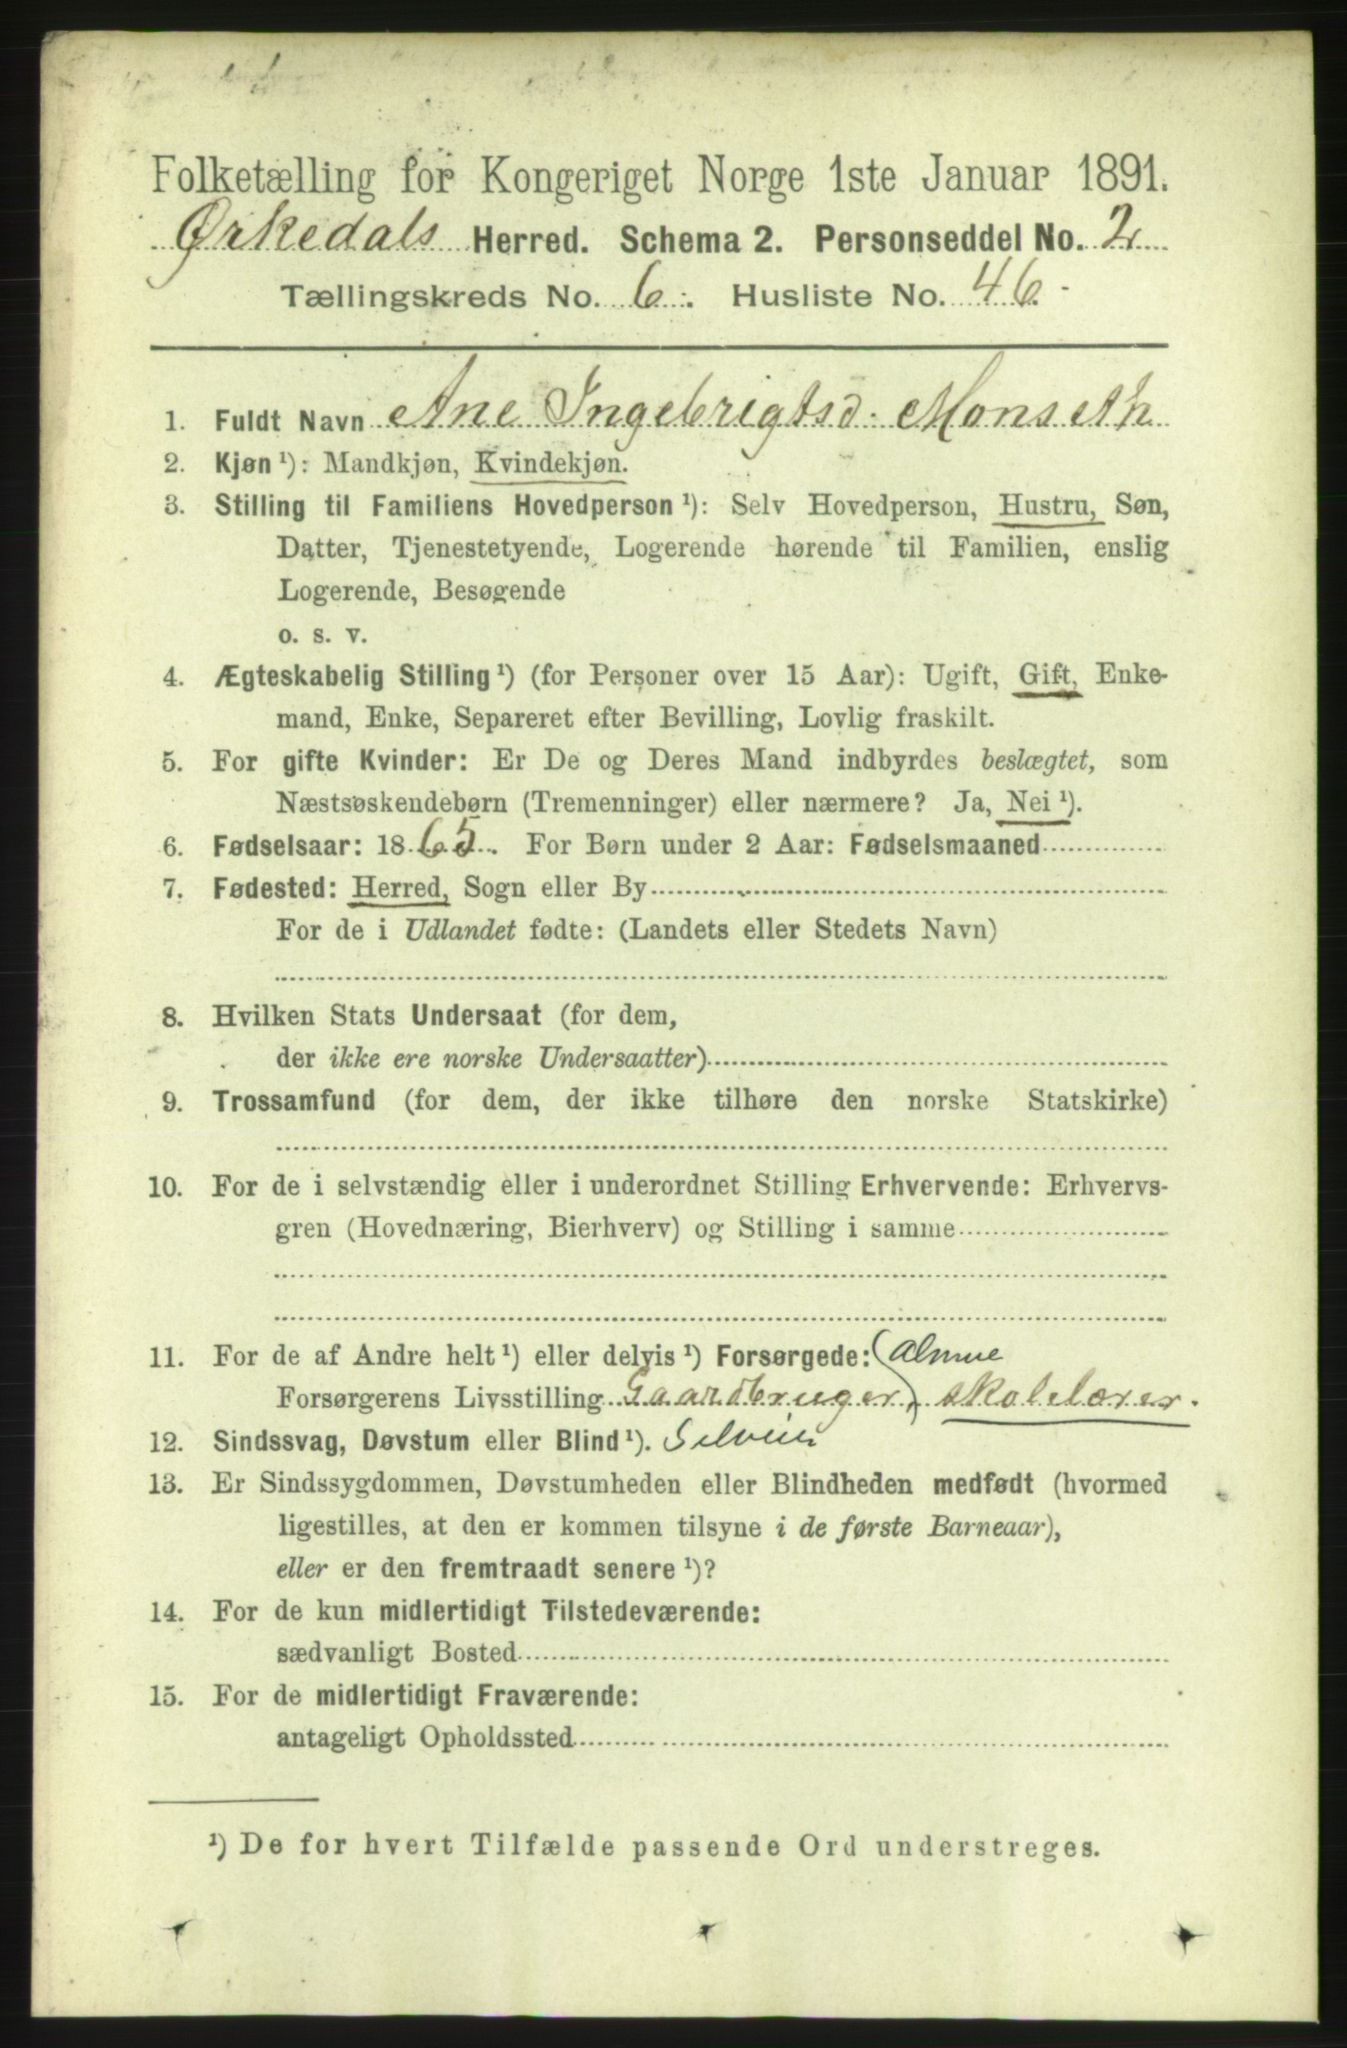 Folketælling for Kongeriget Norge 1ste Januar 1891.
Ørkedals Herred. Schema 2. Personseddel No. 2
Tællingskreds No. 6. Husliste No. 46
1. Fuldt Navn Ane Ingebrigtsd. Monseth
2. Kjøn ¹): Mandkjøn, Kvindekjøn.
3. Stilling til Familiens Hovedperson ¹): Selv Hovedperson, Hustru, Søn,
Datter, Tjenestetyende, Logerende hørende til Familien, enslig
Logerende, Besøgende
o. s. v.
4. Ægteskabelig Stilling ¹) (for Personer over 15 Aar): Ugift, Gift, Enke-
mand, Enke, Separeret efter Bevilling, Lovlig fraskilt.
5. For gifte Kvinder: Er De og Deres Mand indbyrdes beslægtet, som
Næstsøskendebørn (Tremenninger) eller nærmere? Ja, Nei ¹).
6. Fødselsaar: 1865. For Børn under 2 Aar: Fødselsmaaned
7. Fødested: Herred, Sogn eller By
For de i Udlandet fødte: (Landets eller Stedets Navn)
8. Hvilken Stats Undersaat (for dem,
der ikke ere norske Undersaatter)
9. Trossamfund (for dem, der ikke tilhøre den norske Statskirke)
10. For de i selvstændig eller i underordnet Stilling Erhvervende: Erhvervs-
gren (Hovednæring, Bierhverv) og Stilling i samme
11. For de af Andre helt ¹) eller delvis ¹) Forsørgede: (Almue
Forsørgerens Livsstilling Gaardbruger) skolelærer.
12. Sindssvag, Døvstum eller Blind ¹).
13. Er Sindssygdommen, Døvstumheden eller Blindheden medfødt (hvormed
ligestilles, at den er kommen tilsyne i de første Barneaar),
eller er den fremtraadt senere ¹)?
14. For de kun midlertidigt Tilstedeværende:
sædvanligt Bosted
15. For de midlertidigt Fraværende:
antageligt Opholdssted
¹) De for hvert Tilfælde passende Ord understreges.